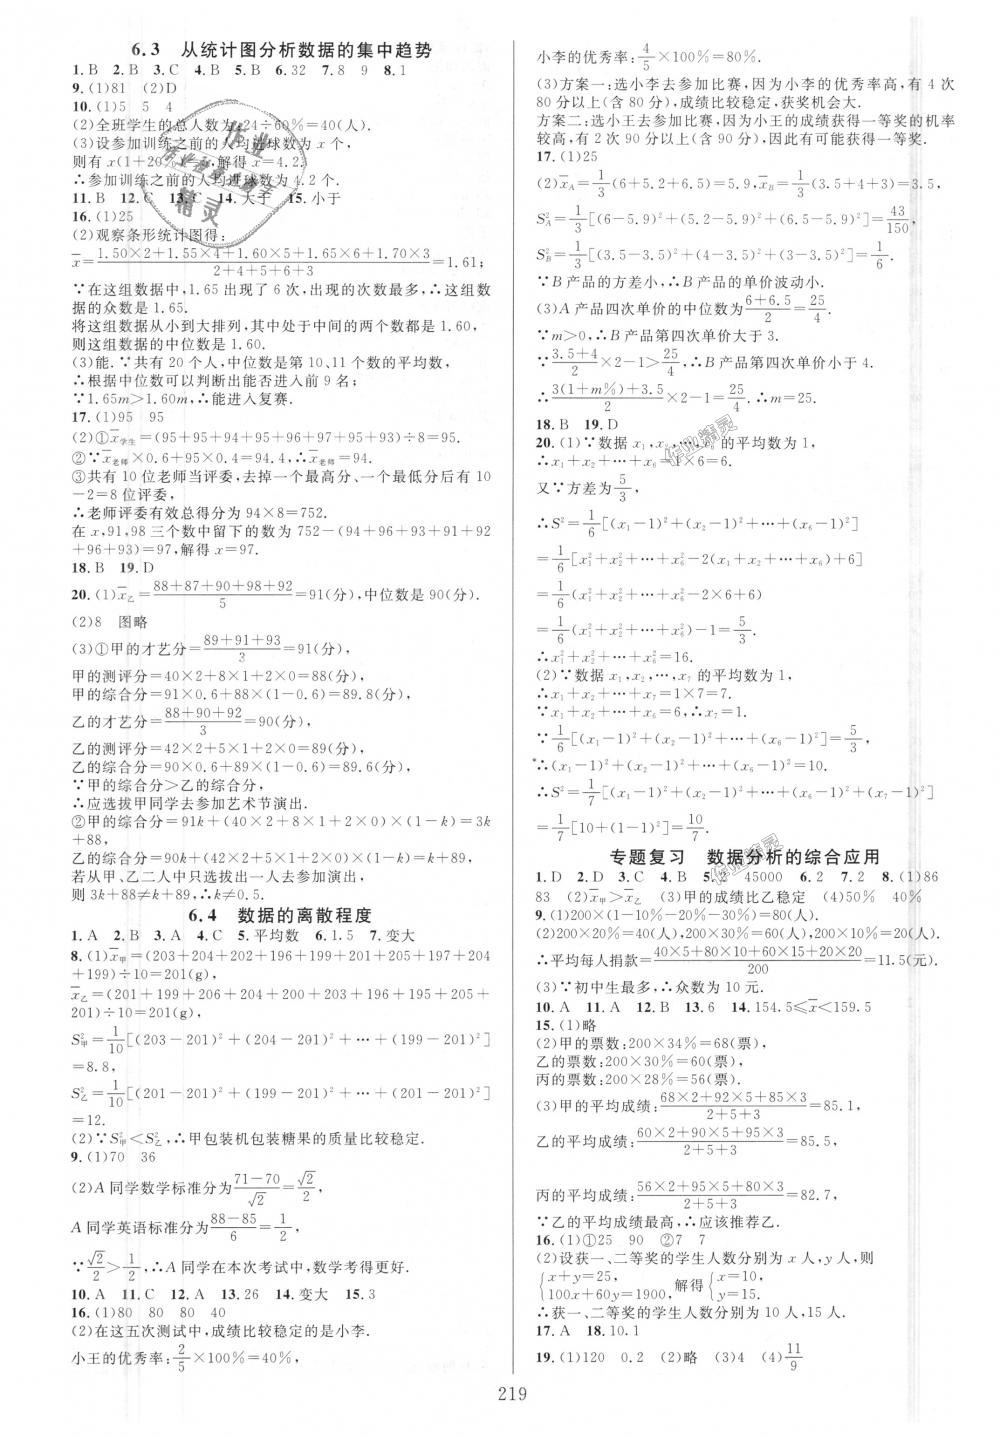 6.3 从统计图分析数据的集中趋势
1.B 2.B 3.C 4.B 5.B 6.32 7.8 9 8.1
9.(1)81 (2)D
10.(1)5 5 4
(2)全班学生的总人数为24÷60%=40(人).
(3)设参加训练之前的人均进球数为x个,
则有x(1+20%)=5,解得x=4.2.
∴参加训练之前的人均进球数为4.2个.
11.B 12.C 13.C 14.大于 15.小于
16.(1)25
(2)观察条形统计图得:
x̄=(1.50×2+1.55×4+1.60×5+1.65×6+1.70×3)/(2+4+5+6+3)=1.61;
∵在这组数据中,1.65出现了6次,出现的次数最多,∴这组数
据的众数是1.65.
将这组数据从小到大排列,其中处于中间的两个数都是1.60,
则这组数据的中位数是1.60.
(3)能.∵共有20个人,中位数是第10、11个数的平均数,
∴根据中位数可以判断出能否进入前9名;
∵1.65m>1.60m,∴能进入复赛.
17.(1)95 95
(2)①x̄学生=(95+95+94+95+96+97+95+93)÷8=95.
②∵x̄老师×0.6+95×0.4=94.4,∴x̄老师=94.
③共有10位老师当评委,去掉一个最高分、一个最低分后有10
-2=8位评委.
∴老师评委有效总得分为94×8=752.
在x,91,98三个数中留下的数为752-(94+96+93+91+92
+96+93)=97,解得x=97.
18.B 19.D
20.(1)x̄乙=(88+87+90+98+92)/5=91(分),中位数是90(分).
(2)8 图略
(3)①甲的才艺分=(89+91+93)/3=91(分),
甲的测评分=40×2+8×1+2×0=88(分),
甲的综合分=91×0.6+88×(1-0.6)=89.8(分),
乙的才艺分=(88+90+92)/3=90(分),
乙的测评分=42×2+5×1+2×0=89(分),
乙的综合分=90×0.6+89×(1-0.6)=89.6(分),
∵甲的综合分>乙的综合分,
∴应选拔甲同学去参加艺术节演出.
②甲的综合分=91k+(40×2+8×1+2×0)×(1-k)=3k
+88,
乙的综合分=90k+(42×2+5×1+2×0)×(1-k)=k+89,
若从甲、乙二人中只选拔出一人去参加演出,
则3k+88≠k+89,∴k≠0.5.
6.4 数据的离散程度
1.A 2.B 3.A 4.C 5.平均数 6.1.5 7.变大
8.(1)x̄甲=(203+204+202+196+199+201+205+197+204
+199)÷10=201(g),
x̄乙=(201+199+206+204+200+203+196+195+205+
201)÷10=201(g),
S²甲=1/10[(203-201)²+(204-201)²+…+(199-201)²]
=8.8,
S²乙=1/10[(201-201)²+(199-201)²+…+(201-201)²]
=12.
(2)∵S²甲<S²乙,∴甲包装机包装糖果的质量比较稳定.
9.(1)70 36
(2)A同学数学标准分为(71-70)/√2=√2/2,
A同学英语标准分为(88-85)/6=1/2,
∵√2/2>1/2,∴A同学在本次考试中,数学考得更好.
10.A 11.C 12.A 13.26 14.变大 15.3
16.(1)80 80 80 40
(2)在这五次测试中,成绩比较稳定的是小李.
小王的优秀率:2/5×100%=40%,
小李的优秀率:4/5×100%=80%.
(3)方案一:选小李去参加比赛,因为小李的优秀率高,有4次
80分以上(含80分),成绩比较稳定,获奖机会大.
方案二:选小王去参加比赛,因为小王的成绩获得一等奖的机率
较高,有2次90分以上(含90分),因此有可能获得一等奖.
17.(1)25
(2)x̄A=1/3(6+5.2+6.5)=5.9,x̄B=1/3(3.5+4+3)=3.5,
S²A=1/3[(6-5.9)²+(5.2-5.9)²+(6.5-5.9)²]=43/150,
S²B=1/3[(3.5-3.5)²+(4-3.5)²+(3-3.5)²]=1/6.
∵B产品的方差小,∴B产品的单价波动小.
(3)A产品四次单价的中位数为(6+6.5)/2=25/4.
∵m>0,∴B产品第四次单价大于3.
∵(3.5+4)/2×2-1>25/4,∴B产品第四次单价小于4.
∴(3(1+m%)+3.5)/2×2-1=25/4.∴m=25.
18.B 19.D
20.(1)∵数据x₁,x₂,…,x₆的平均数为1,
∴x₁+x₂+…+x₆=1×6=6.
又∵方差为5/3,
∴S²=1/6[(x₁-1)²+(x₂-1)²+…+(x₆-1)²]
=1/6[x₁²+x₂²+…+x₆²-2(x₁+x₂+…+x₆)+6]
=1/6(x₁²+x₂²+…+x₆²-2×6+6)
=1/6(x₁²+x₂²+…+x₆²)-1=5/3.
∴x₁²+x₂²+…+x₆²=16.
(2)∵数据x₁,x₂,…,x₇的平均数为1,
∴x₁+x₂+…+x₇=1×7=7.
∵x₁+x₂+…+x₆=6,∴x₇=1.
∵1/6[(x₁-1)²+(x₂-1)²+…+(x₆-1)²]=5/3,
∴(x₁-1)²+(x₂-1)²+…+(x₆-1)²=10.
∴S²=1/7[(x₁-1)²+(x₂-1)²+…+(x₆-1)²+(x₇-1)²]
=1/7[10+(1-1)²]=10/7.
专题复习 数据分析的综合应用
1.D 2.D 3.C 4.B 5.2 45000 6.2 7.2 8.(1)86
83 (2)x̄甲>x̄乙 (3)甲的成绩比乙稳定 (4)50% 40%
9.(1)200×(1-10%-20%-30%)=80(人).
(2)200×20%=40(人),200×30%=60(人),200×10%=20(人).
∴平均每人捐款=(40×5+80×10+60×15+20×20)/200=11.5(元).
(3)∵初中生最多,∴众数为10元.
10.A 11.A 12.B 13.6 14.154.5≤x̄<159.5
15.(1)略
(2)甲的票数:200×34%=68(票),
乙的票数:200×30%=60(票),
丙的票数:200×28%=56(票).
(3)甲的平均成绩:(68×2+92×5+85×3)/(2+5+3)=85.1,
乙的平均成绩:(60×2+90×5+95×3)/(2+5+3)=85.5,
丙的平均成绩:(56×2+95×5+80×3)/(2+5+3)=82.7,
∵乙的平均成绩最高,∴应该推荐乙.
16.(1)①25 90 ②7 7
(2)设获一、二等奖的学生人数分别为x人,y人,则
{x+y=25, 100x+60y=1900, 解得{x=10, y=15.
∴获一、二等奖的学生人数分别为10人,15人.
17.A 18.10.1
19.(1)120 0.2 (2)略 (3)4 (4)11/9
219